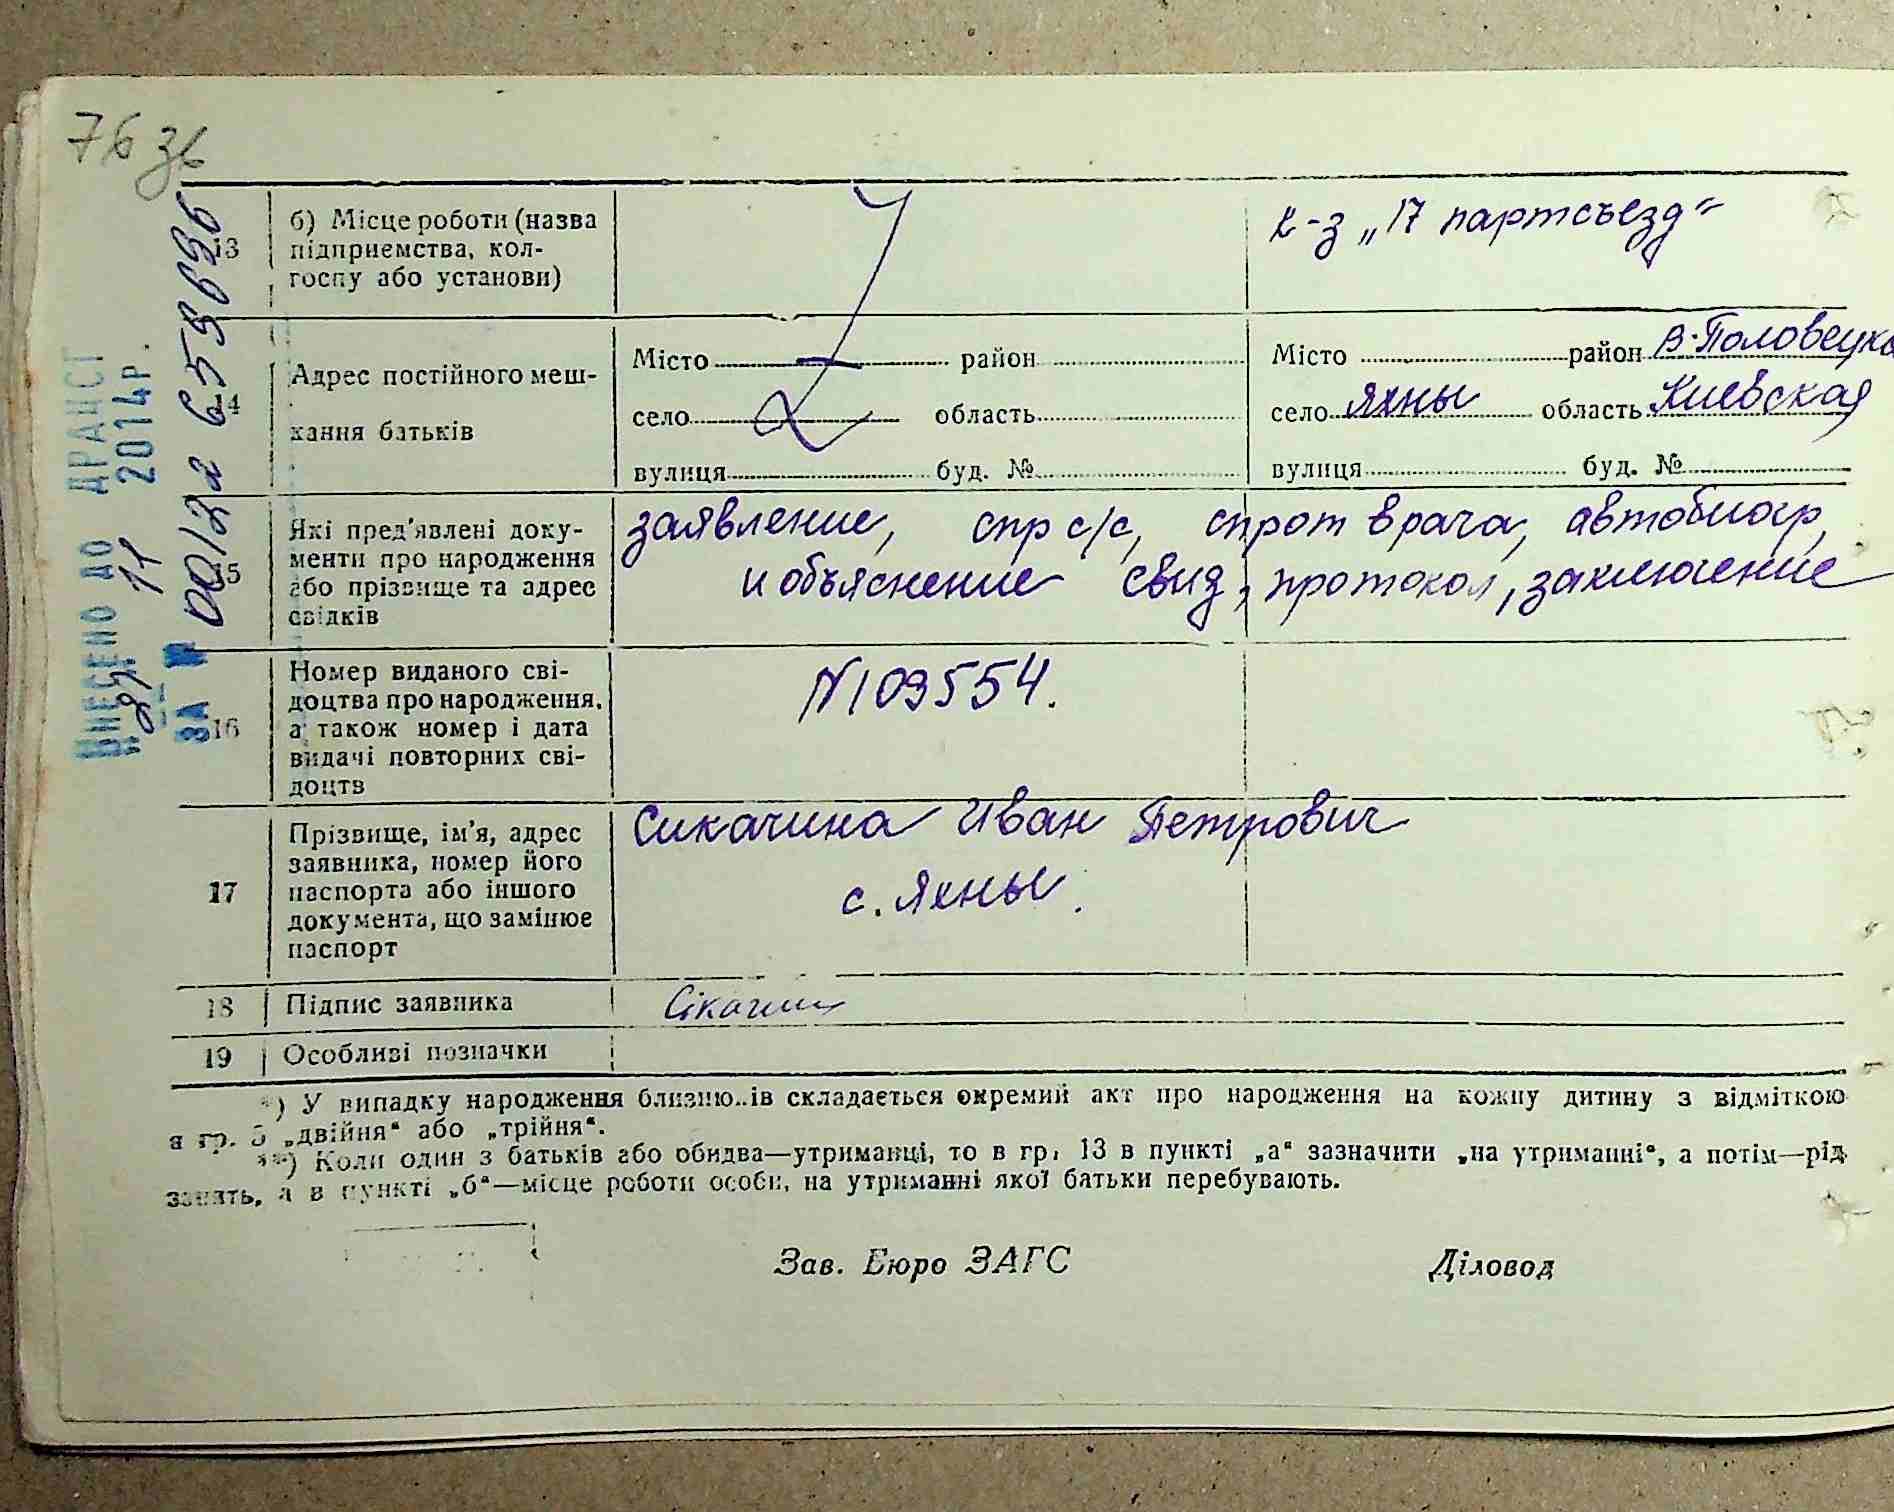 76 зв
ВНЕСЕНО ДО ДРАЦСГ
11 2014р.
ЗА №
13
б) Місце роботи (назва
підприємства, кол-
госпу або установи)
к-з „17 партсъезд"
14
Адрес постійного меш-
кання батьків
Місто район
село область
вулиця буд. №
Місто район В-Половецко
село Яхны область Киевская
вулиця буд. №
15
Які пред'явлені доку-
менти про народження
або прізвище та адрес
свідків
заявление, спр с/с, спр от врача, автобиогр,
и объяснение свид, протокол, заключение
16
Номер виданого сві-
доцтва про народження,
а також номер і дата
видачі повторних сві-
доцтв
N109554.
17
Прізвище, ім'я, адрес
заявника, номер його
паспорта або іншого
документа, що замінює
паспорт
Сикачина Иван Петрович
с. Яхны.
18 Підпис заявника
19 Особливі позначки
*) У випадку народження близню..ів складається окремий акт про народження на кожну дитину з відміткою
в гр. 5 „двійня" або „трійня".
**) Коли один з батьків або обидва—утриманці, то в гр. 13 в пункті „а" зазначити „на утриманні", а потім—рід
занять, а в пункті „б"—місце роботи особи, на утриманні якої батьки перебувають.
Зав. Бюро ЗАГС Діловод